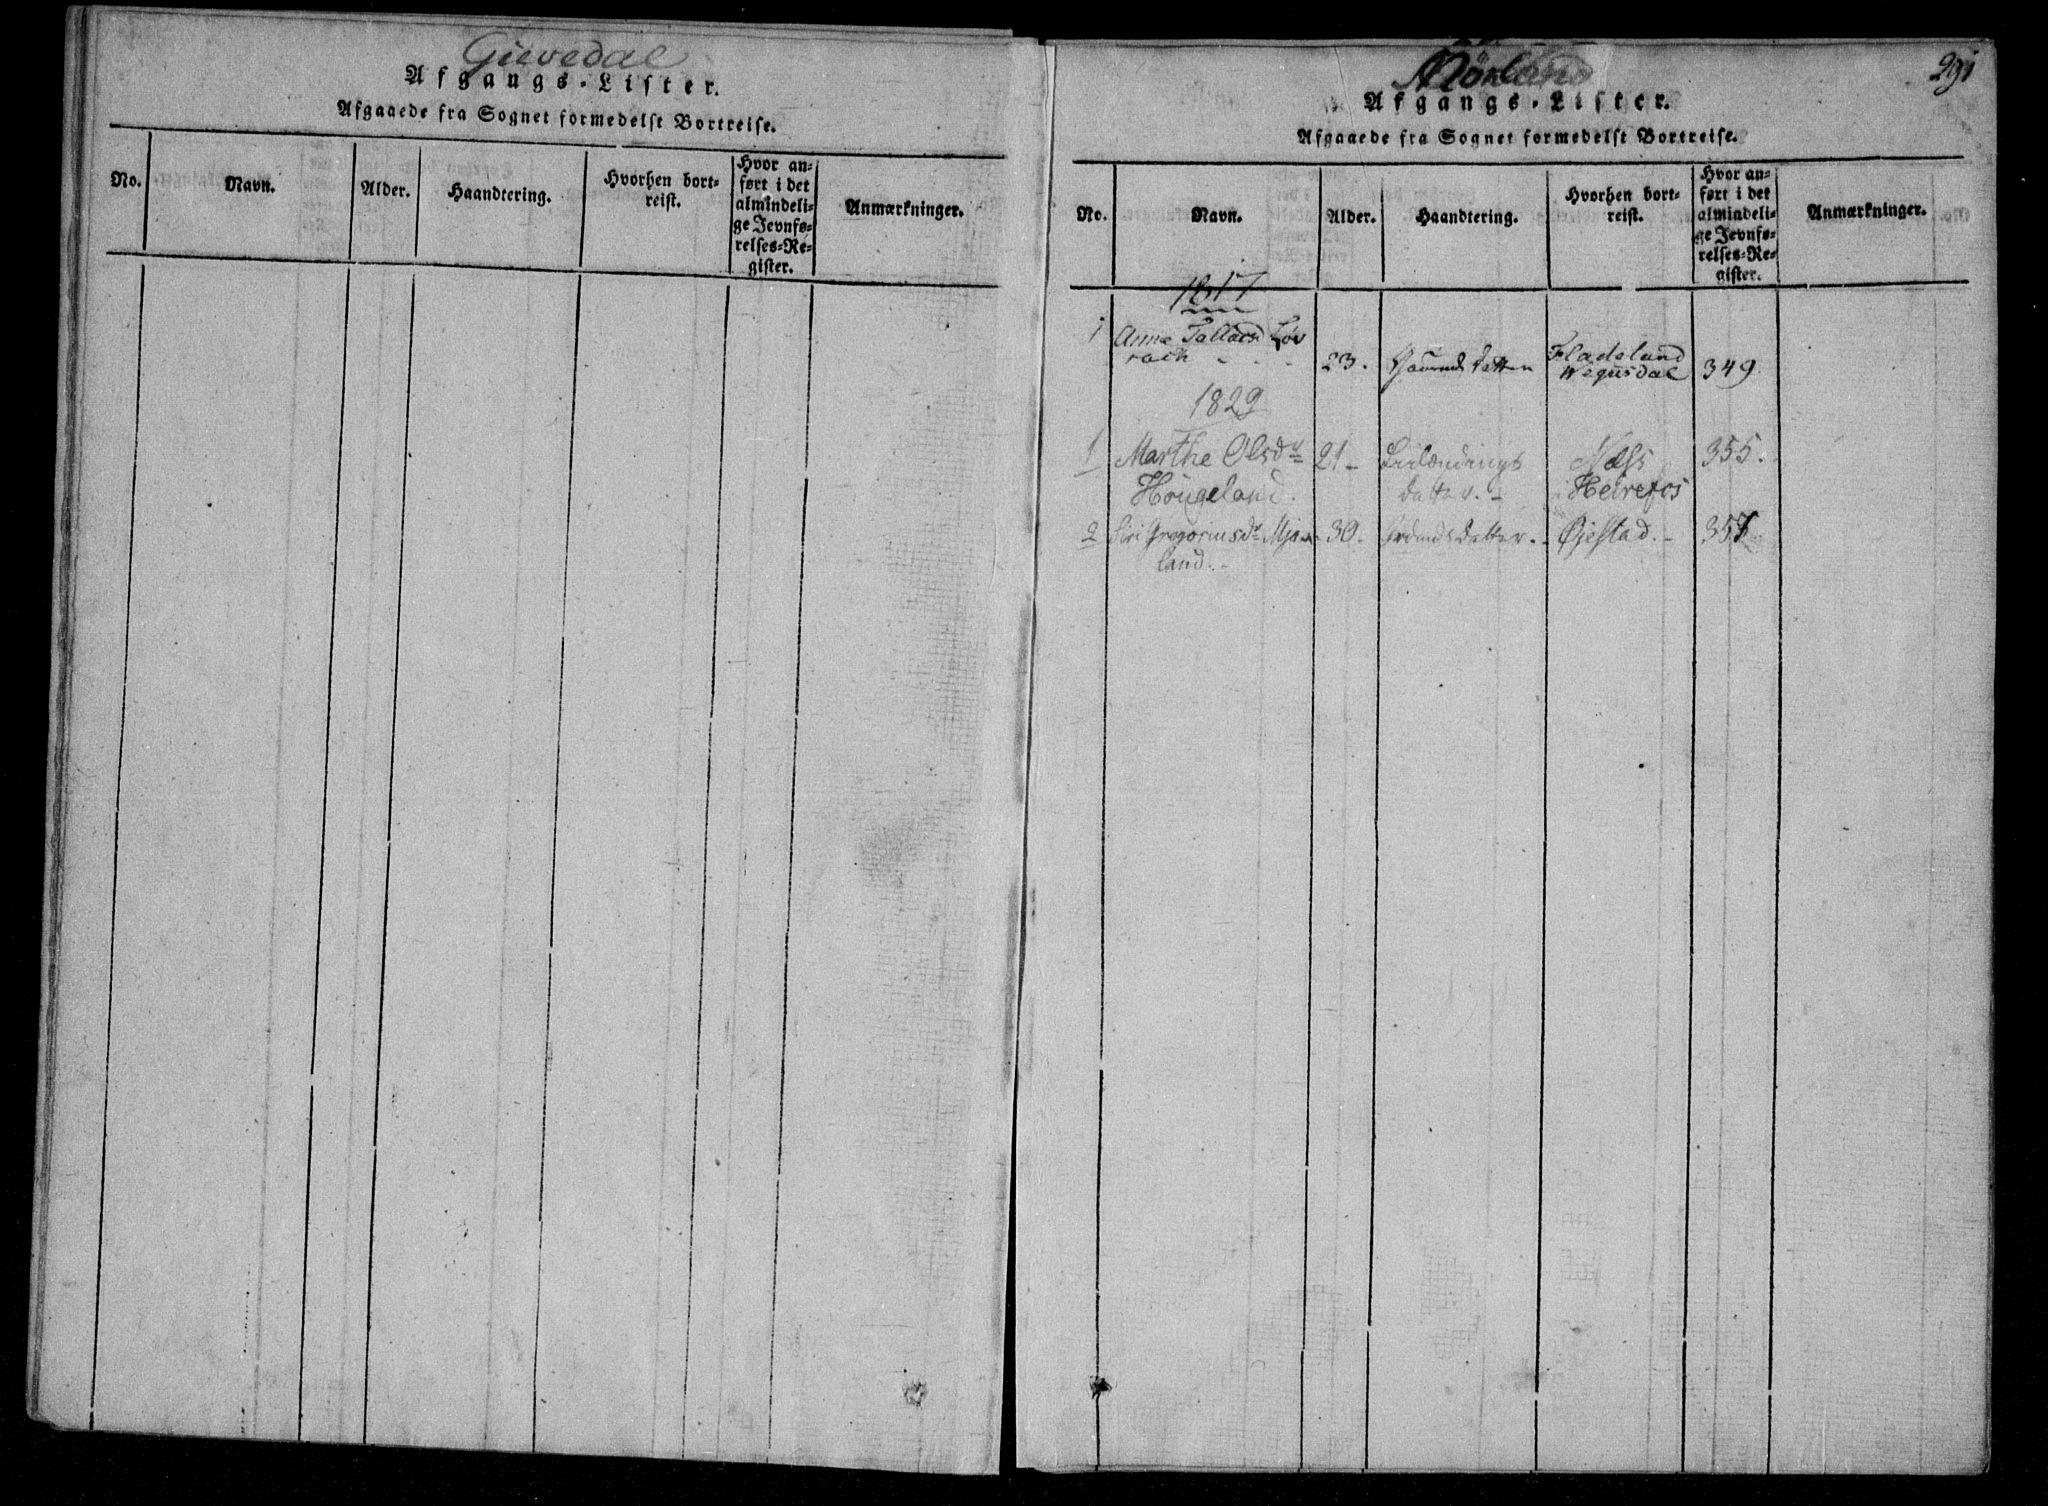 Gievedal
Afgangs-Lister.
Afgaaede fra Sognet formedelst Bortreise.
No.
Navn.
Alder.
Haandtering.
Hvorhen bort-
reist.
Hvor an-
ført i det
almindeli-
ge Jevnfø-
relses-Re-
gister.
Anmærkninger.
291
Mörland
Afgangs-Lister.
Afgaaede fra Sognet formedelst Bortreise.
No.
Navn.
Alder.
Haandtering.
Hvorhen bort-
reist.
Hvor an-
ført i det
almindeli-
ge Jevnfø-
relses-Re-
gister.
Anmærkninger.
1817
1 Anne
23. Datter Fladeland Wegusdal 349
1829
1 Marthe Olsdr 21- Næss 355.
Höugeland. datter. Heirefos
2 Siri Gregoriusdr Mjaa- 30- datter.- Øjestad.- 357
land.-